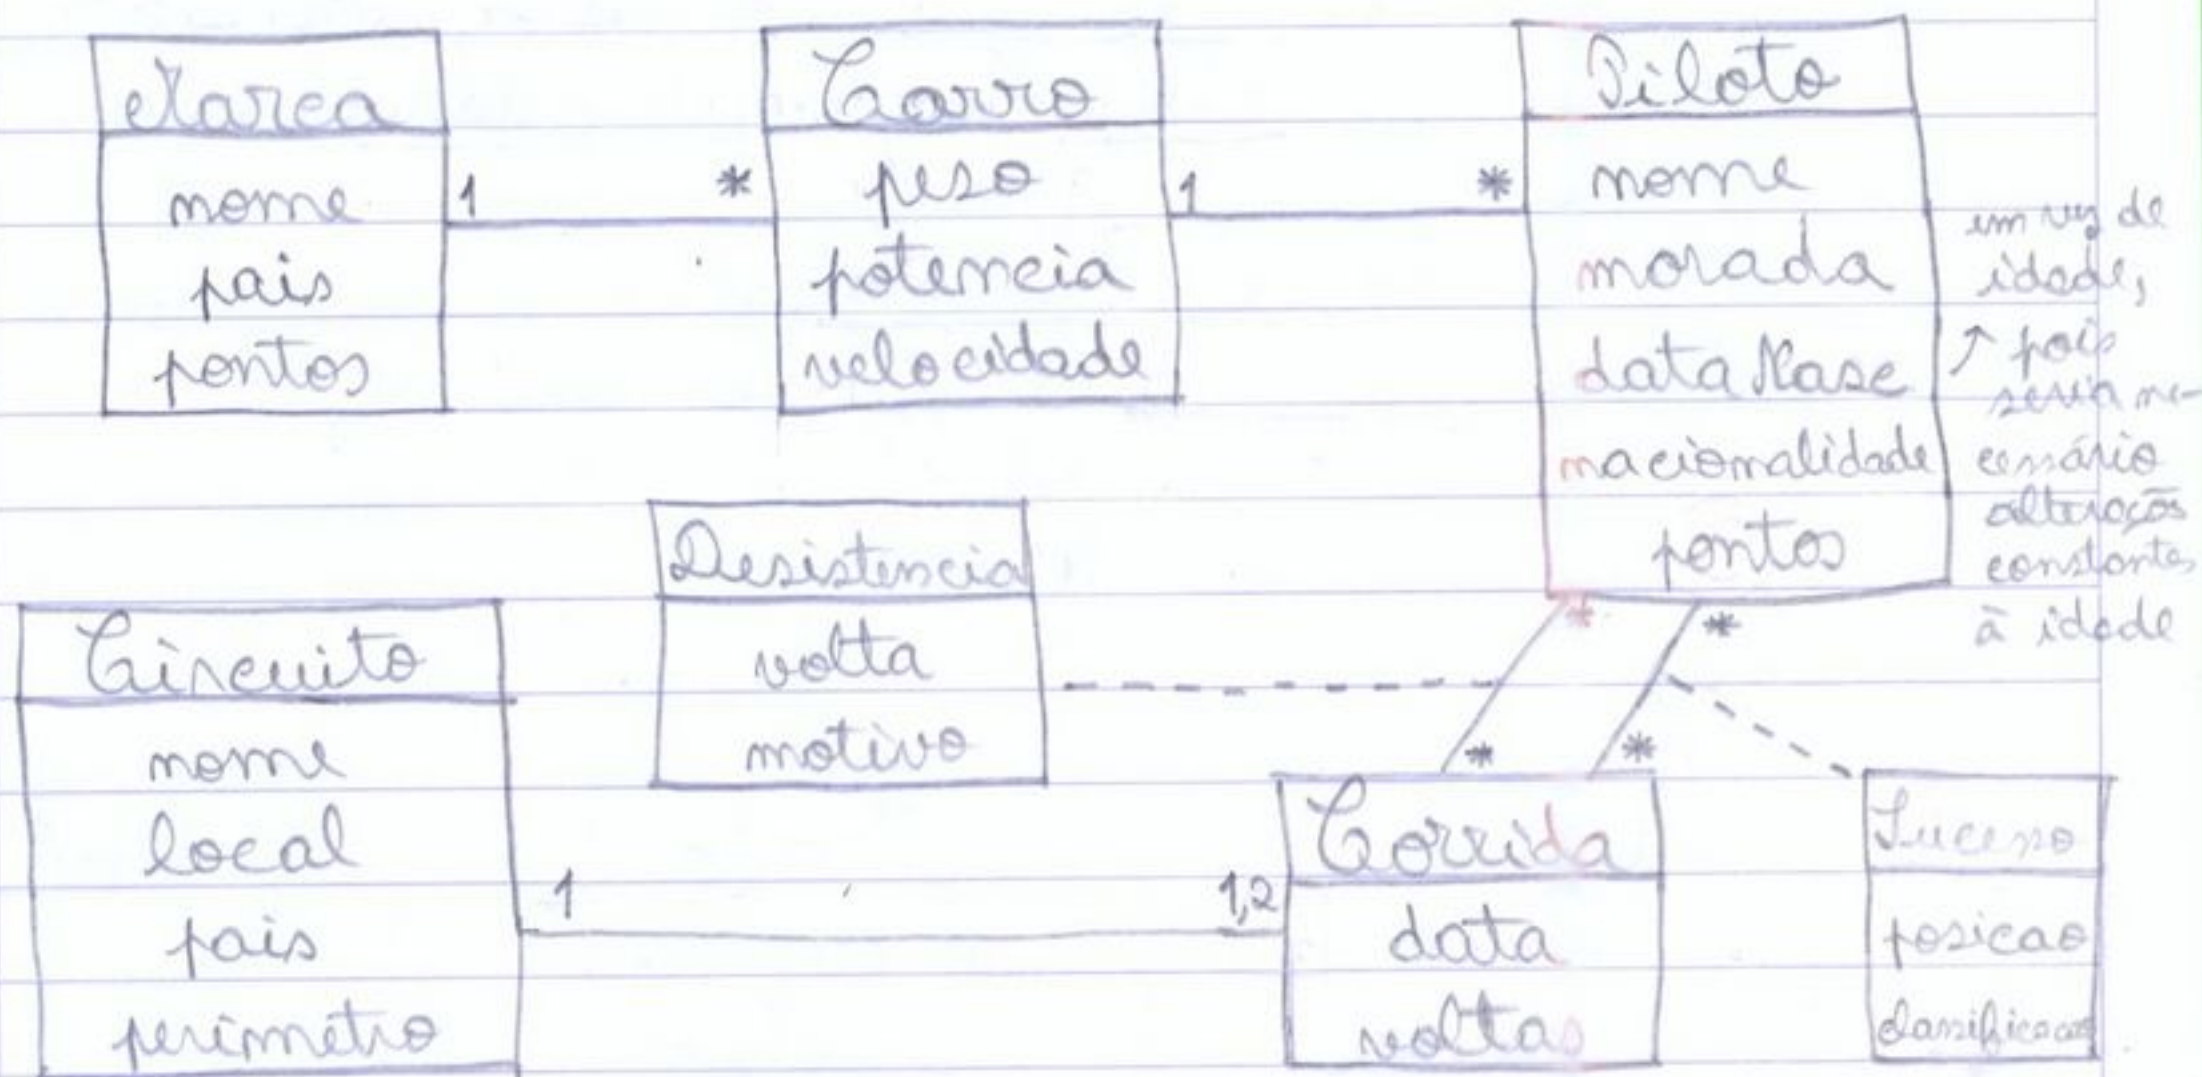 Marca
nome
pais
pontos
1
*
Carro
peso
potencia
velocidade
1
*
Piloto
nome
morada
data Nasc
nacionalidade
pontos
em vez de
idade,
↑ pois
seria ne-
cessário
alterações
constantes
à idade
*
*
*
*
Desistencia
volta
motivo
Circuito
nome
local
pais
perimetro
1
1,2
Corrida
data
voltas
Sucesso
posicao
classificacao